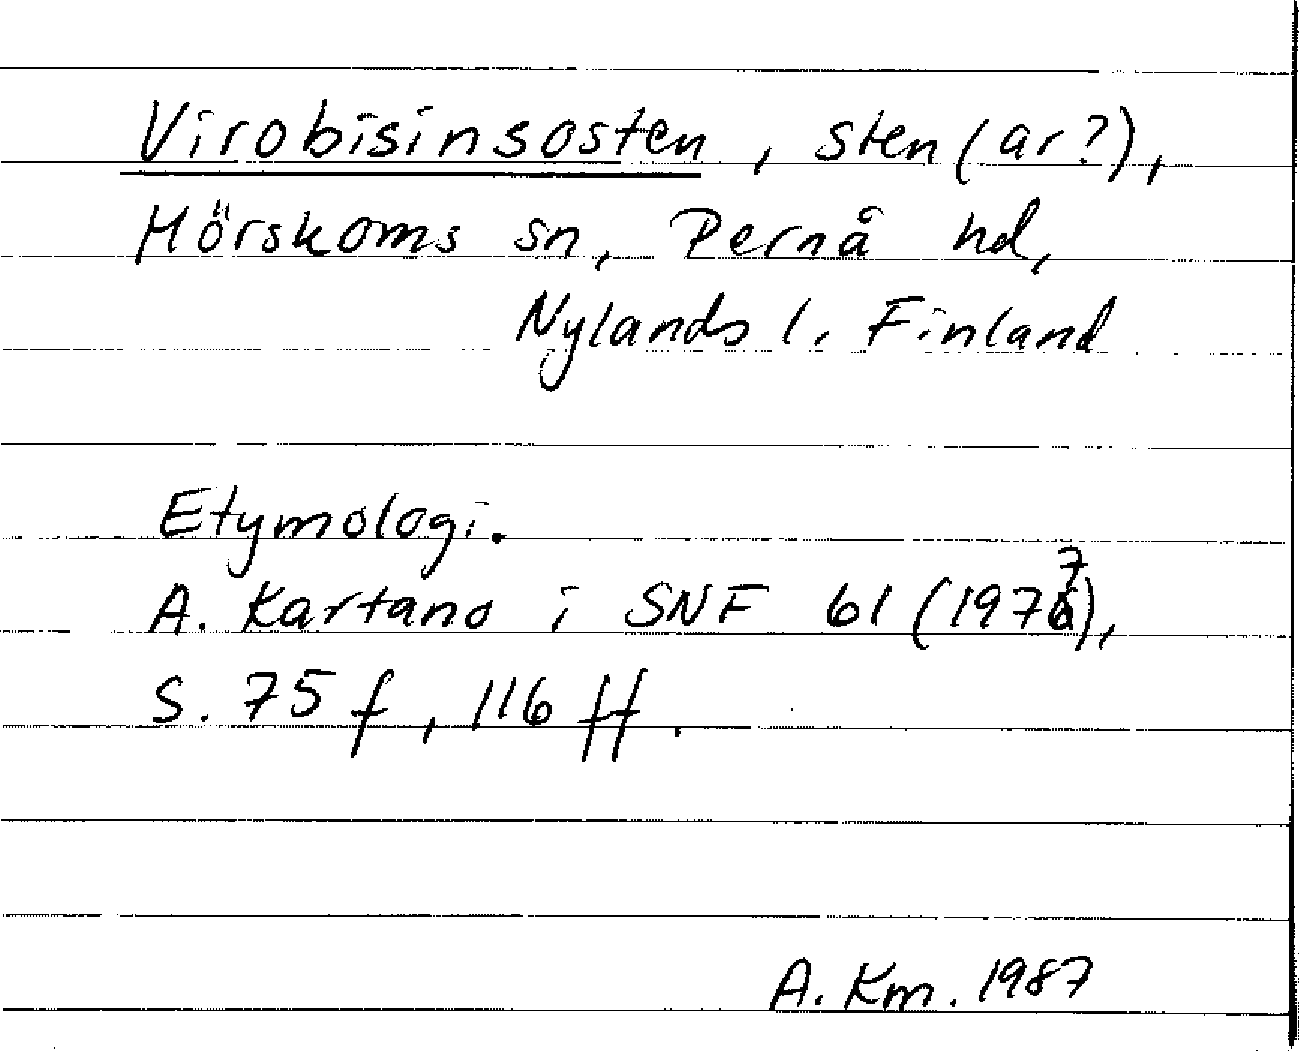 Virobisinsosten, sten(ar?),
Mörskoms sn, Pernå hd,
Nylands l. Finland
Etymologi.
A. Kartano i SNF 61 (1977),
S. 75 f, 116 ff.
A. Km. 1987